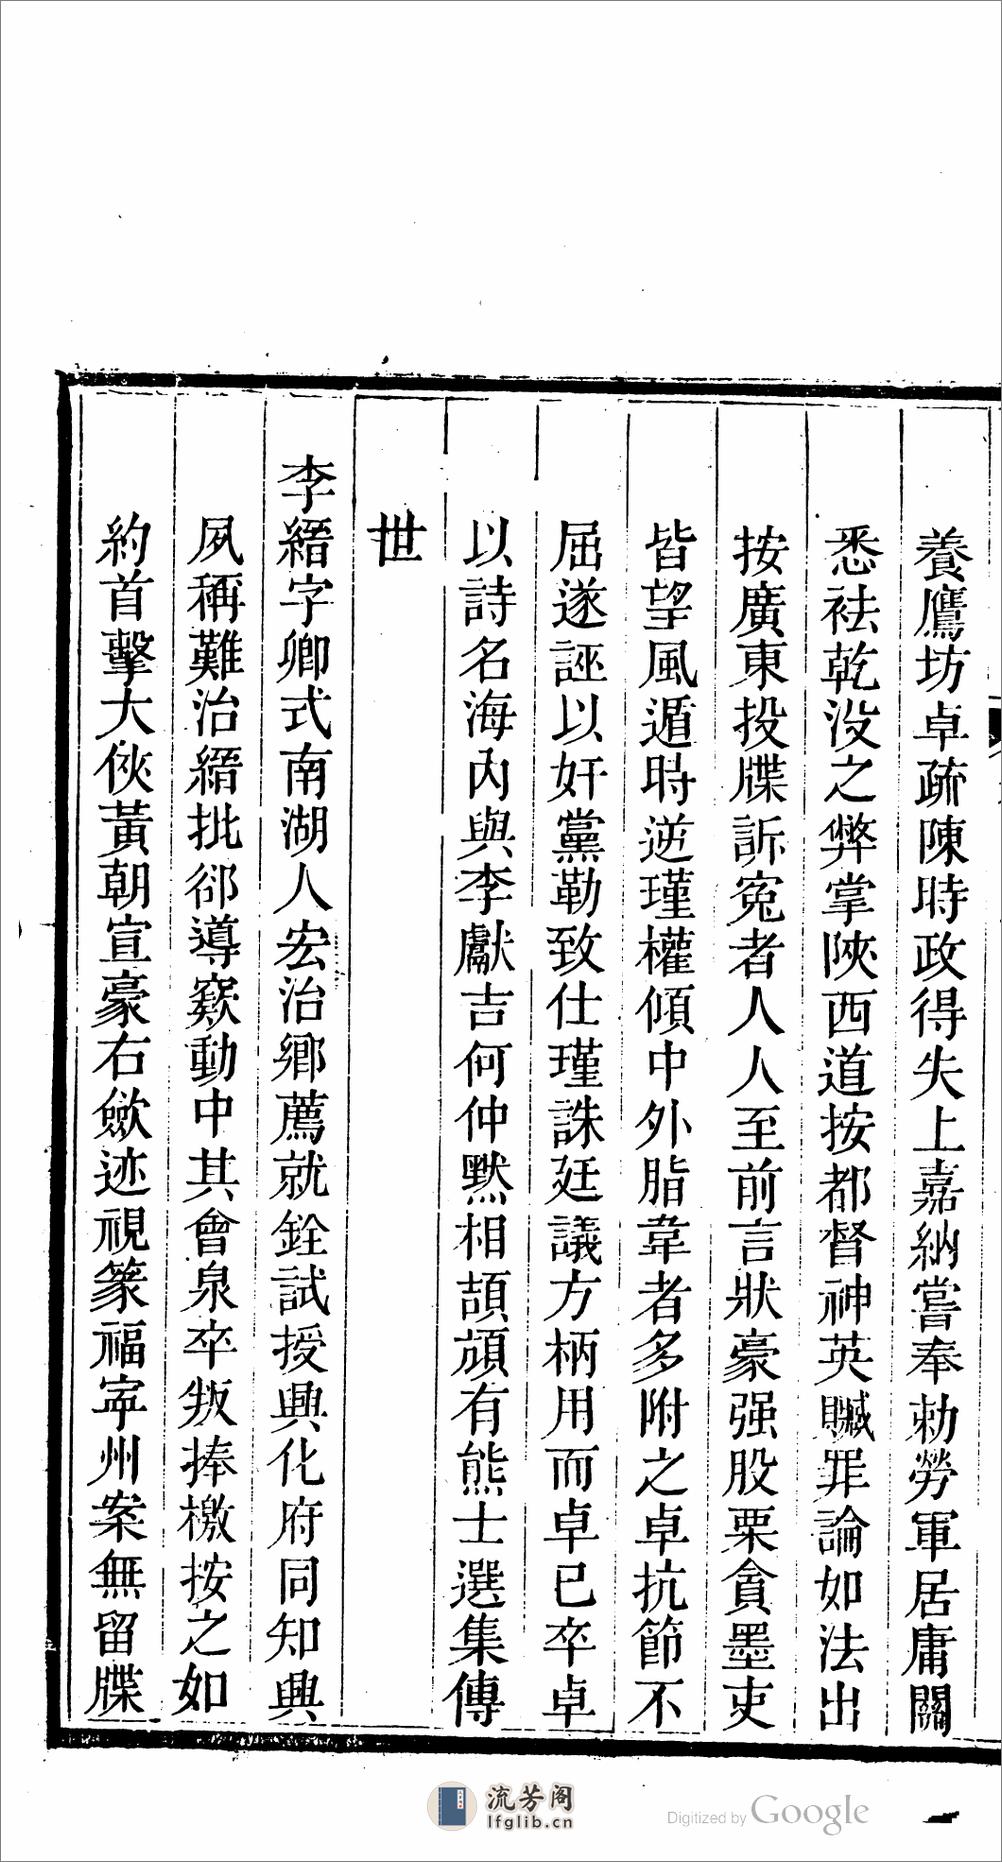 養鷹坊卓疏陳時政得失上嘉納嘗奉勅勞軍居庸關
悉袪乾没之弊掌陝西道按都督神英贓罪論如法出
按廣東投牒訴寃者人人至前言狀豪强股栗貪墨吏
皆望風遁時逆瑾權傾中外脂韋者多附之卓抗節不
屈遂誣以奸黨勒致仕瑾誅廷議方柄用而卓已卒卓
以詩名海内與李獻吉何仲默相頡頏有熊士選集傳
世
李縉字卿式南湖人宏治鄉薦就銓試授興化府同知興
夙稱難治縉批郤導窾動中其會泉卒叛捧檄按之如
約首擊大俠黃朝宣豪右歛迹視篆福寧州案無留牒
流芳阁
lfglib.cn
Digitized by Google